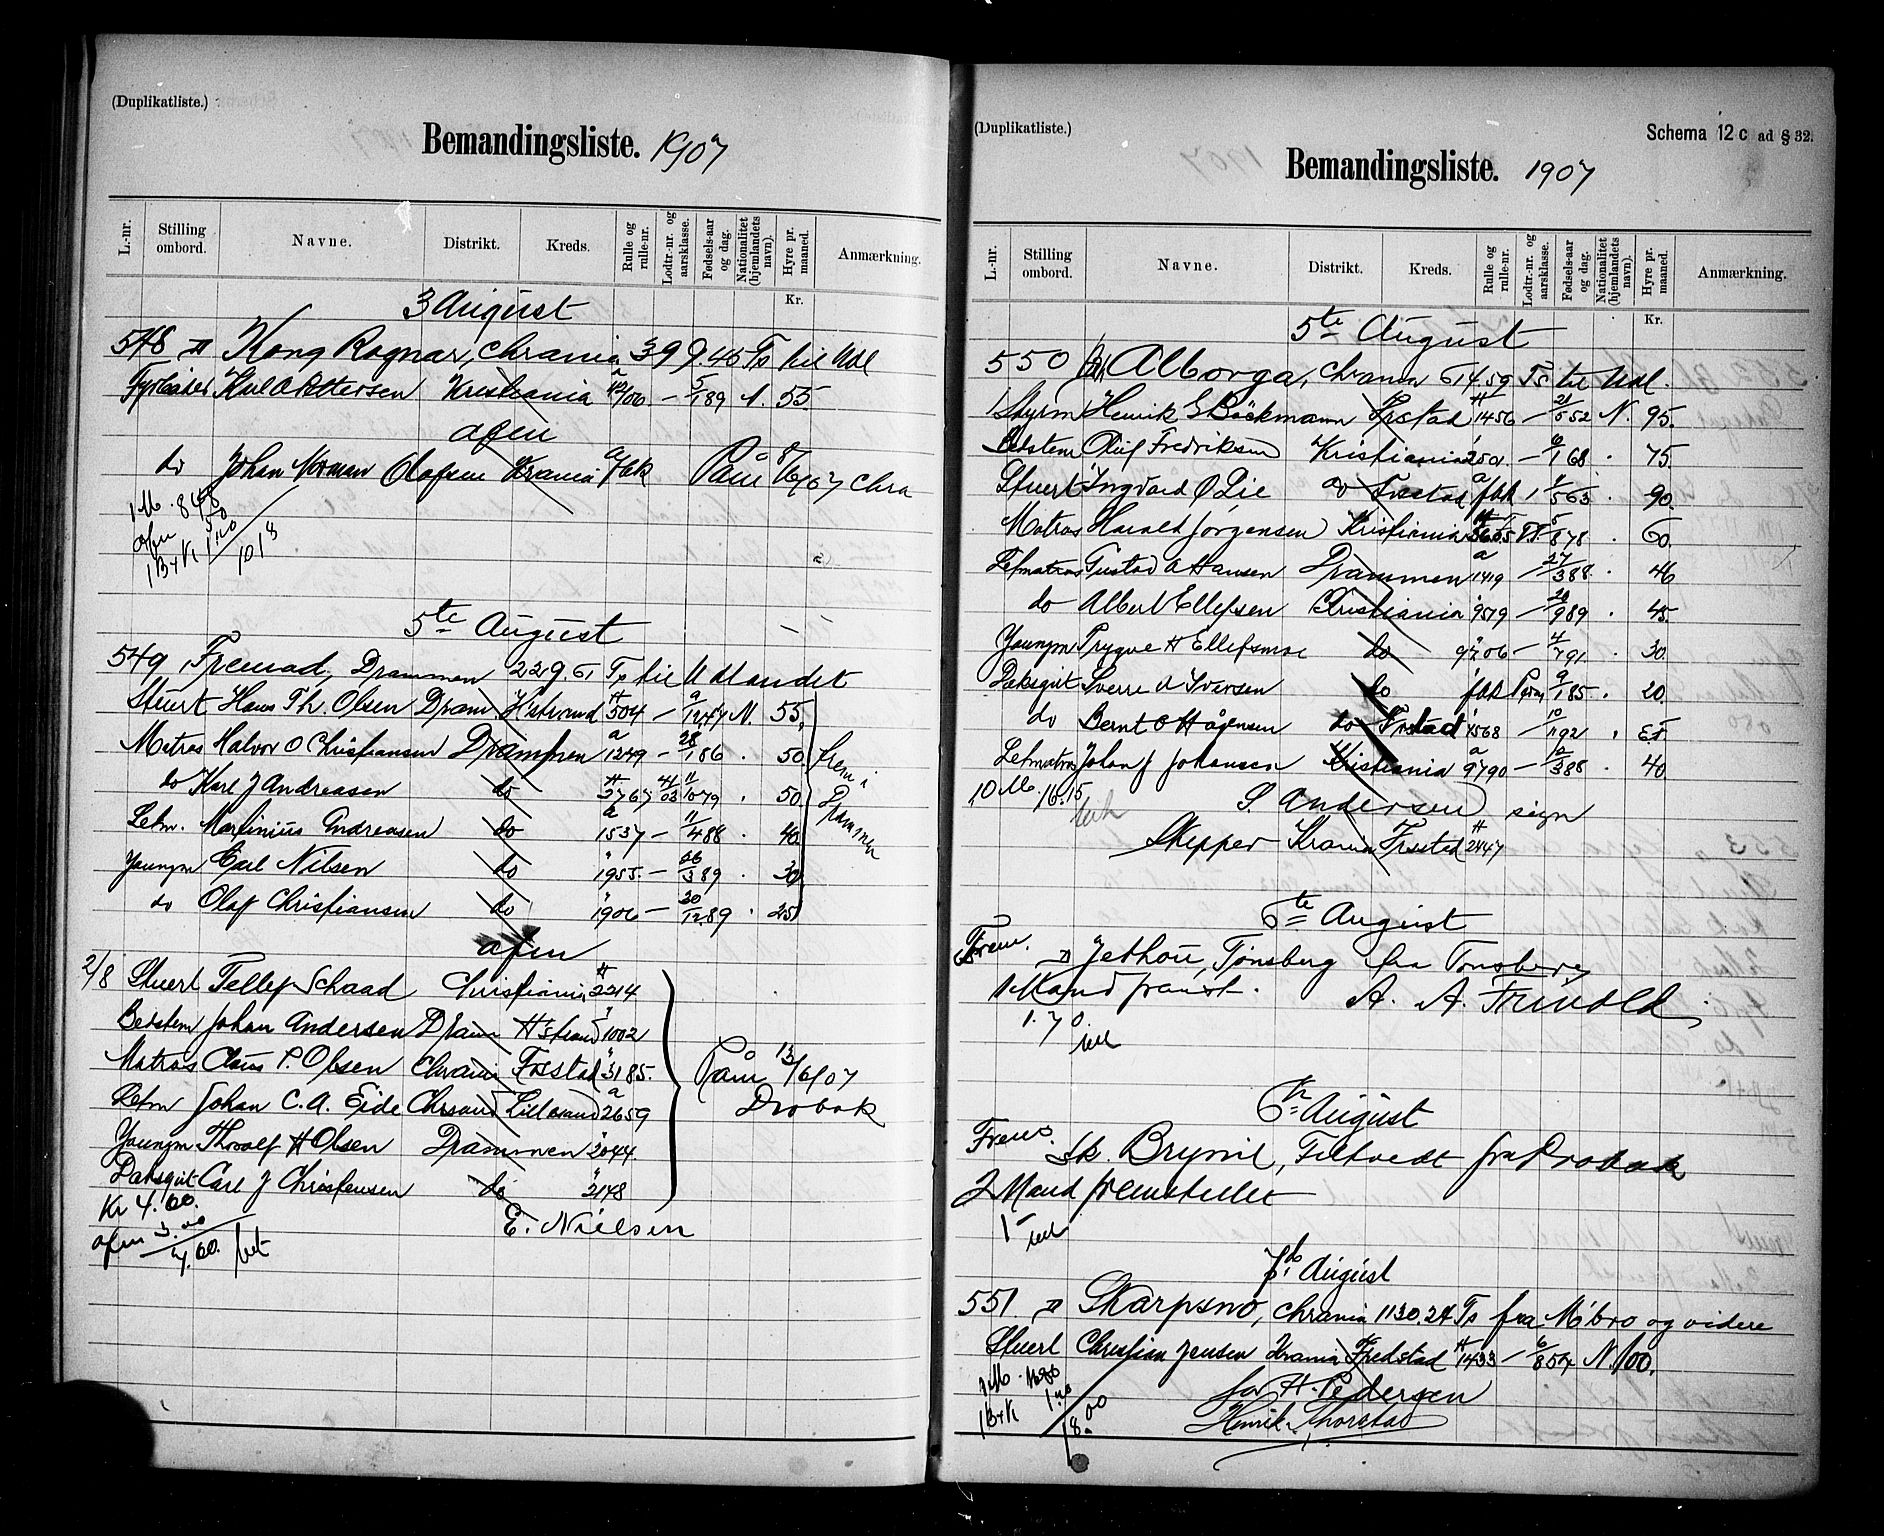 (Duplikatliste.)
Bemandingsliste. 1907
L.-nr. Stilling ombord. Navne. Distrikt. Kreds. Rulle og rulle-nr. Lodtr.-nr. og aarsklasse. Fødsels-aar og dag. Nationalitet (hjemlandets navn). Hyre pr. maaned. Anmærkning.
Kr.
3 August
548 Kong Ragnar, Chrania 399.45 Ts til Udl
Fyrbøder Karl O Pettersen Kristiania 5/1 89 N. 55.
afm
do Johan Norman Olafsen Krania a fbk Påm 8/6 07 Chra
1 M.
afm
1 B+K
5te August
549 Fremad, Drammen 229.61 Ts til Udlandet
Stuert Hans Th. Olsen Dram H'strand 504 – 9/12 47 N. 55.
Matros Halvor O Christiansen Drammen a 1249 – 28/1 86 . 50.
do Karl J Andreasen do 3767 11/10 79 . 50.
Letm. Martinius Andreasen do a 1537 – 11/4 88 . 40
Youngm Carl Nilsen do " 1955 – 26/3 89 . 30
do Olaf Christiansen do " 1906 – 30/12 89 . 25
frem i Drammen
afm
2/8 Stuert Tellef Schaad Christiania 2214
Bedstem Johan Andersen Dram H'strand 1002
Matros Claus P. Olsen Chrania Frestad " 3185.
Letm Johan C. A. Eide Chrsand Lillesand a 2659
Youngm Thorolf H Olsen Drammen " 2044.
Dæksgut Carl J Christensen do " 2148
Påm 13/6/07
Drobak
Kr 4.00.
E. Nielsen
afm 3.00
7.00. bet
(Duplikatliste.)
Schema 12 c ad § 32.
Bemandingsliste. 1907
L.-nr. Stilling ombord. Navne. Distrikt. Kreds. Rulle og rulle-nr. Lodtr.-nr. og aarsklasse. Fødsels-aar og dag. Nationalitet (hjemlandets navn). Hyre pr. maaned. Anmærkning.
Kr.
5te August
550 Alborga, Chrania 614.59 Ts til Udl.
Styrm Henrik E Bäckmann Frstad 1456 – 21/5 52 N. 95.
Bedstem Oluf Fredriksen Kristiania – 6/1 68 . 75.
Stuert Ingvard O Lie do Frestad a fbk 1/5 63 . 90.
Matros Harald Jørgensen Kristiania 5/8 78 . 60.
Letmatros Gustav A Hansen Drammen a 1419 – 27/3 88 . 46
do Albert Ellefsen Christiania 9519 – 20/9 89 . 45.
Youngm Trygve H Ellefsmoe do 9706 – 4/7 91 . 30.
Dæksgut Sverre A Iversen do fbk 9/1 85 . 20.
do Bernt O Hågensen do Frstad 1568 – 10/1 92 .
Letmatros Johan J Johansen Kristiania a 9790 – 12/3 88 . 40
10 M. 16.15
S. Andersen sign
Skipper Krania Frestad 2447
6te August
Frem. Jethou, Tønsberg fra Tønsberg
1 Mand fremst. A. A. Trivold
1.70.
6te August
Frem. Sk. Brynil, Filtvedt fra Drobak
2 Mand fremstillet
7de August
551 Skarpsno, Chrania 1130.24 Ts fra M'bro og videre
Stuert Christian Jensen Krania Fredstad 1433 – 6/8 54 N. 100.
1 M.
for H. Pedersen
1 B+K
Henrik Thorstad